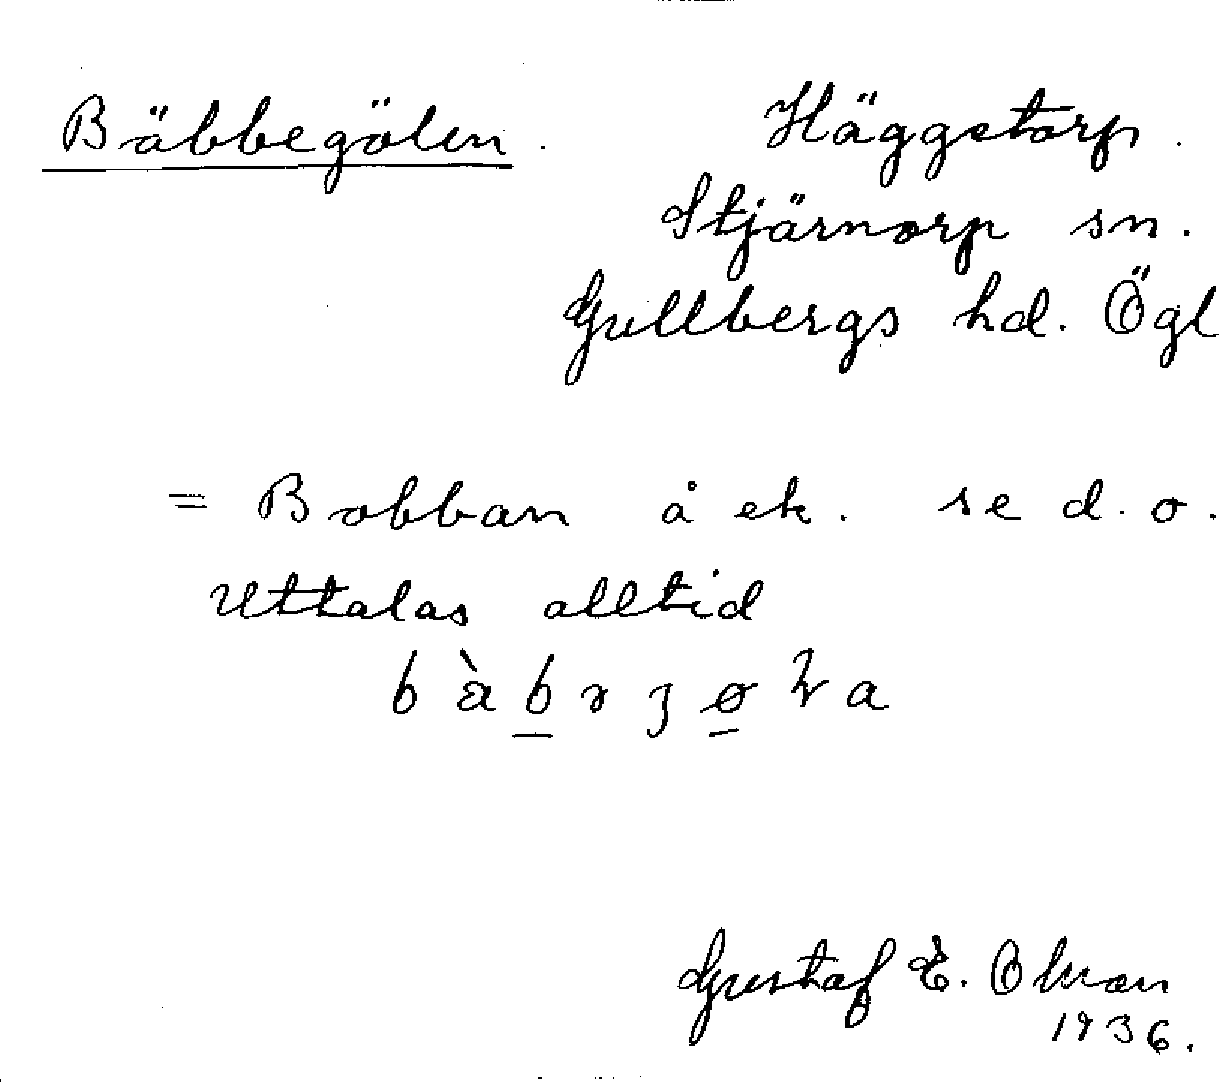 Bäbbegölen.
Häggetorp.
Stjärnorp sn.
Gullbergs hd. Ögl
= Bobban å ek. se d. o.
Uttalas alltid
Gustaf E. Olman
1936.